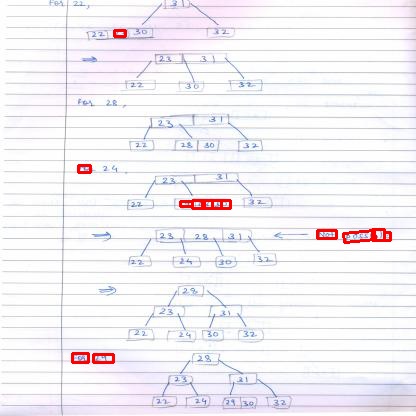 For 22,
31
22 30 32
⇒ 23 31
22 30 32
For 28,
23 31
22 28 30 32
24,
23 31
22 32
⇒ 23 28 31 ←
22 24 30 32
⇒ 28
23 31
22 24 30 32
28
23 31
22 24 29 30 32